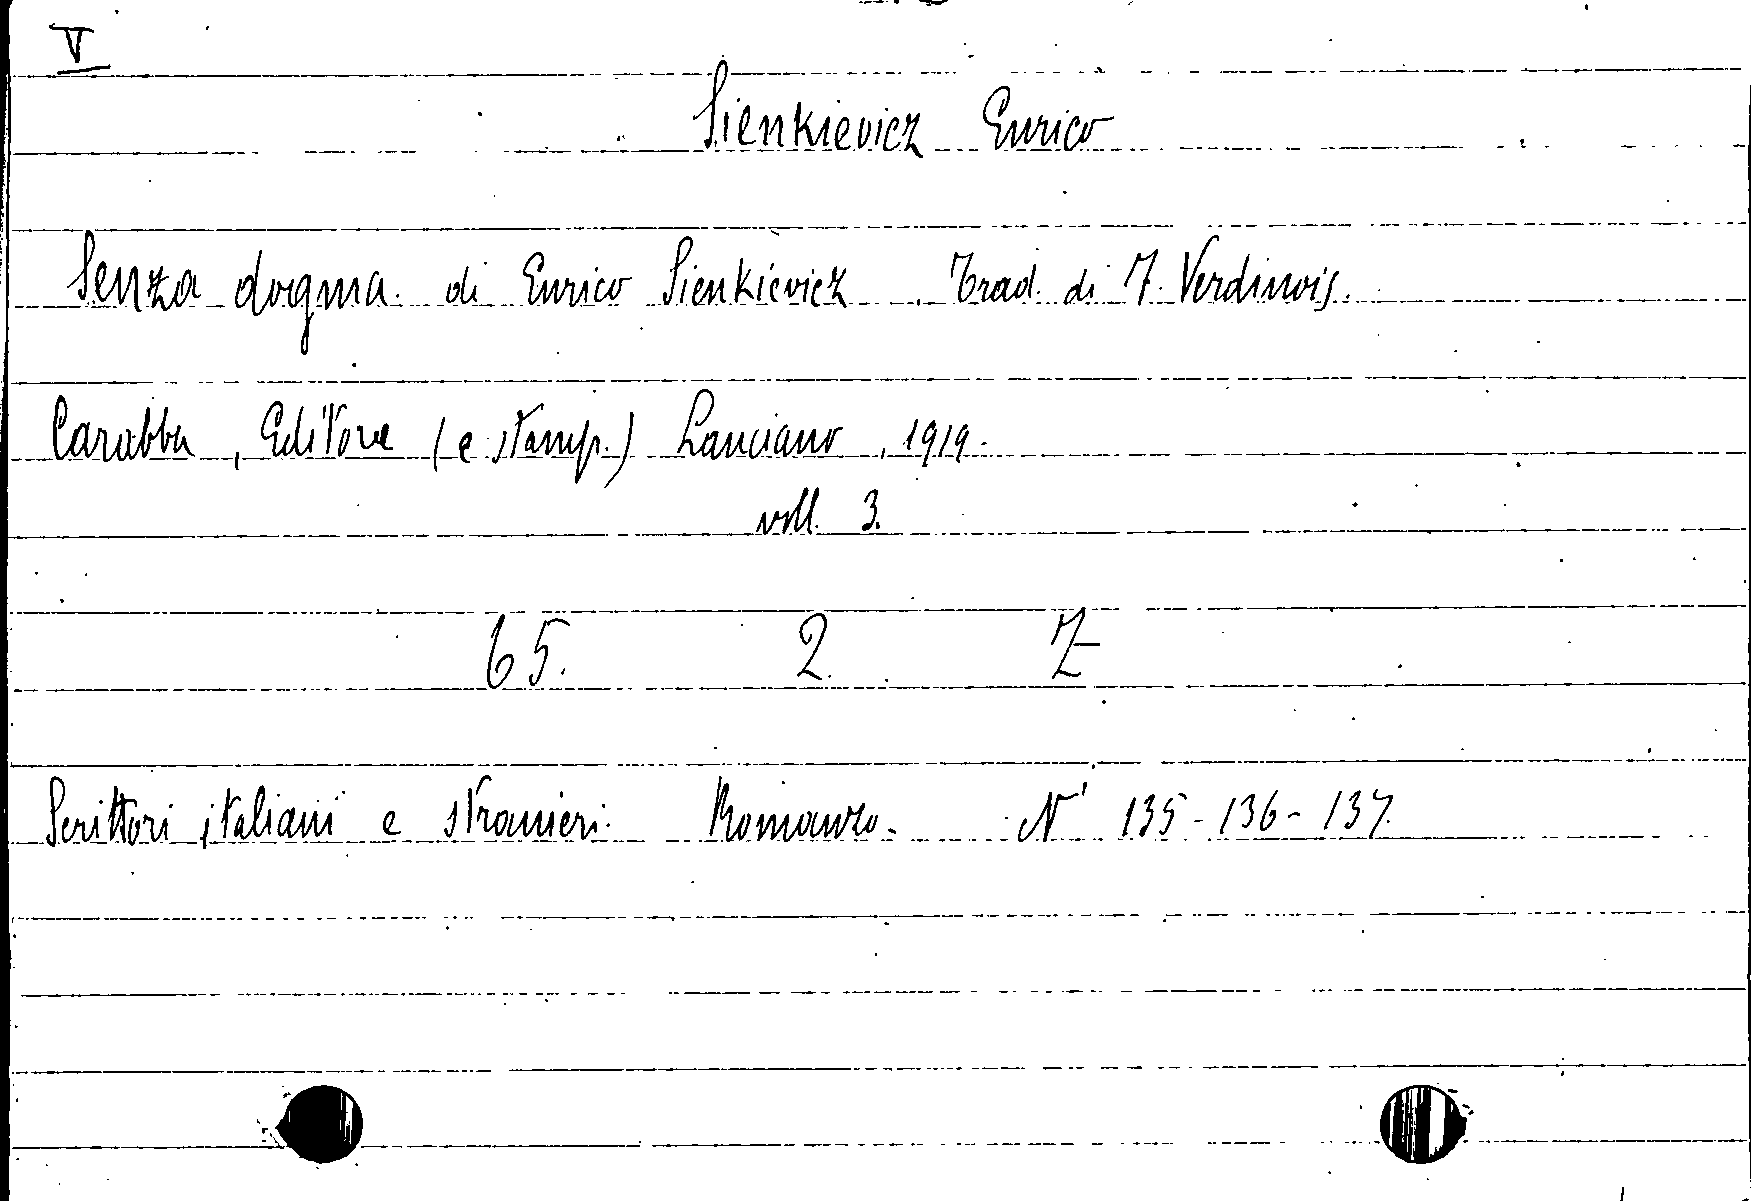 V
Sienkievicz Enrico
Senza dogma. di Enrico Sienkievicz. Trad. di F. Verdinois.
Carabba, Editore (e stamp.) Lanciano, 1919.
voll. 3.
65. 2. Z
Scrittori italiani e stranieri. Romanzo. N° 135-136-137.